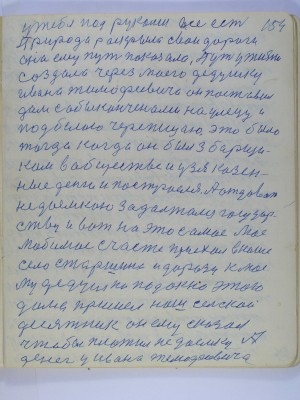 у тебя под руками все ест 154
Природа расдовыла свои дороги
она ему пут показала, Пут у жизни
создала через моего дедушку
ивана тимофеевича он поставил
дом с обыкончиками на улецу и
под белою черепицаю, это было
тогда когда он был збарщи-
ком в обществе и узял казен-
ные денги и построился. А отдовать
недоимкою задалжалу государ-
ству и вот на это самае Мое
Любимое счасте приехал в наше
село старшина и дорогу к мое
му дедушки подокно этого
дома пришел наш селской
десятник он ему сказал
чтобы платил недоимку А
денег у ивана тимофеевича